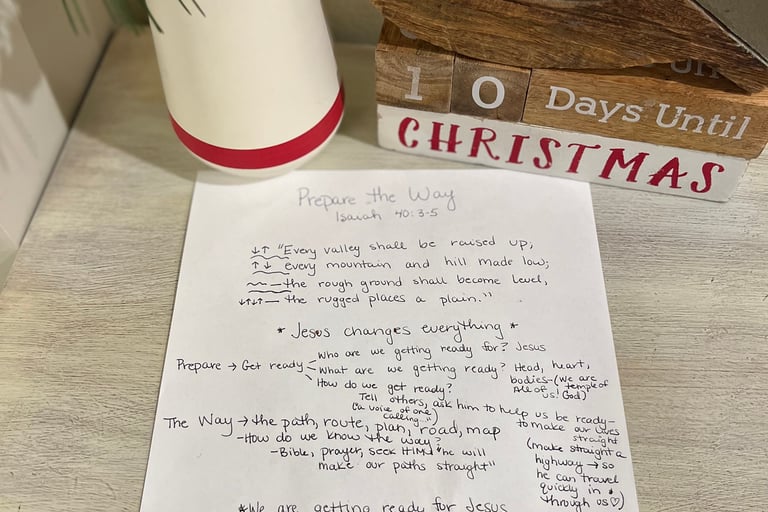 1 0 Days Until
CHRISTMAS
Prepare the Way
Isaiah 40:3-5
↓↑ "Every valley shall be raised up,
↑↓ every mountain and hill made low;
the rough ground shall become level,
↓↑↓↑— the rugged places a plain."
* Jesus changes everything *
Prepare → Get ready
Who are we getting ready for? Jesus
What are we getting ready? Head, heart,
bodies-(we are
temple of
All of us! God)
How do we get ready?
Tell others, ask him to help us be ready-
("a voice of one
calling...")
to make our lives
straight
(make straight a
highway → so
he can travel
quickly in &
through us♡)
The Way → the path, route, plan, road, map
-How do we know the way?
-Bible, prayer, seek HIM "he will
make our paths straight"
*We are getting ready for Jesus